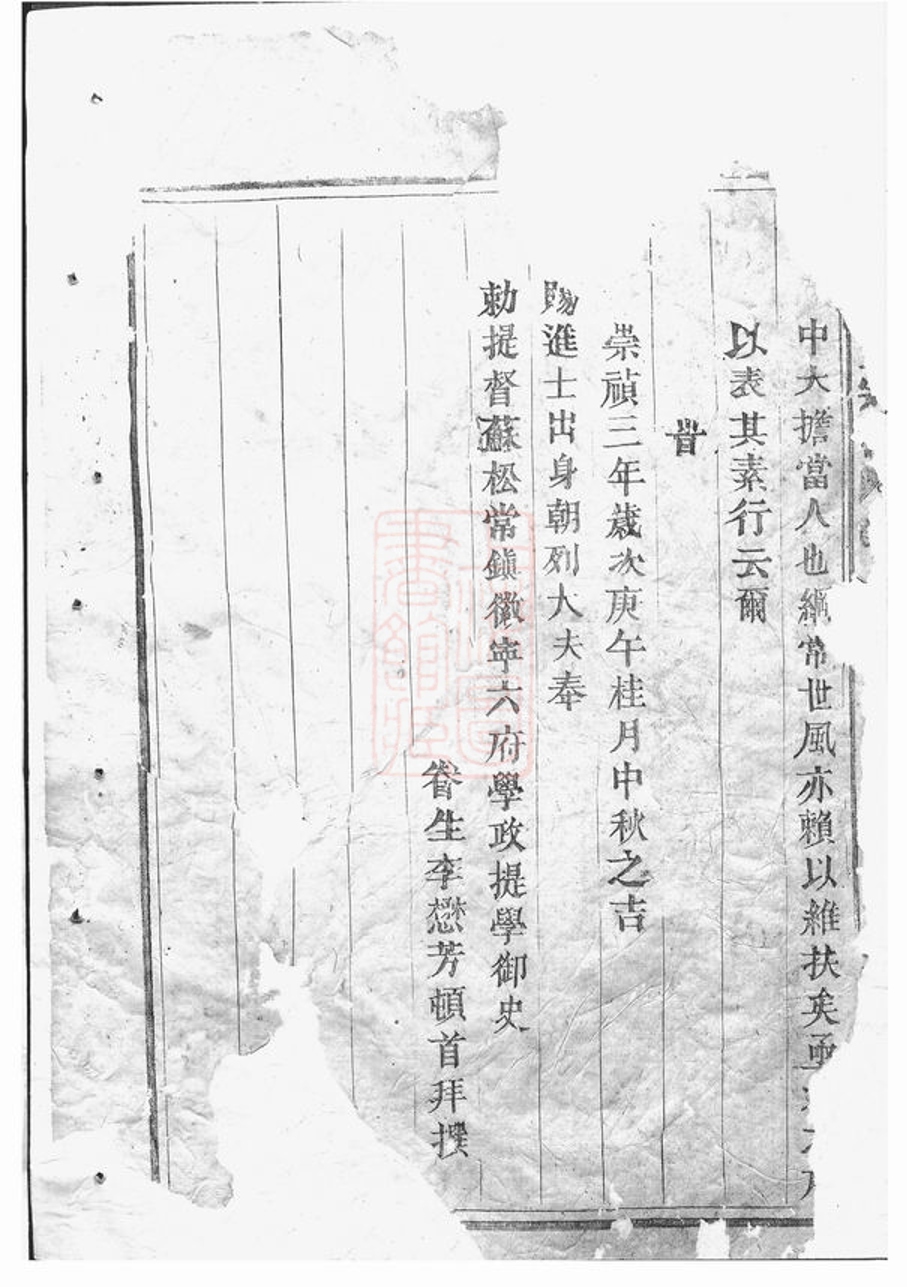 中大擔當人也綱常世風亦賴以維扶矣亟
以表其素行云爾
旹
崇禎三年歲次庚午桂月中秋之吉
賜進士出身朝列大夫奉
勅提督蘇松常鎮徽寧六府學政提學御史
眷生李懋芳頓首拜撰